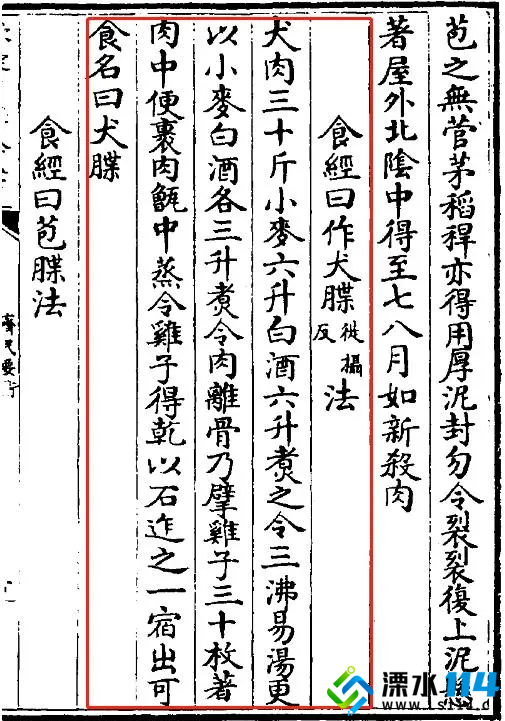 苞之無菅茅稻稈亦得用厚泥封勿令裂裂復上泥
著屋外北陰中得至七八月如新殺肉
食經曰作犬䐑徒攝反法
犬肉三十斤小麥六升白酒六升煮之令三沸易湯更
以小麥白酒各三升煮令肉離骨乃擘雞子三十枚著
肉中便裹肉甑中蒸令雞子得乾以石迮之一宿出可
食名曰犬䐑
食經曰苞䐑法
齊民要術
溧水114